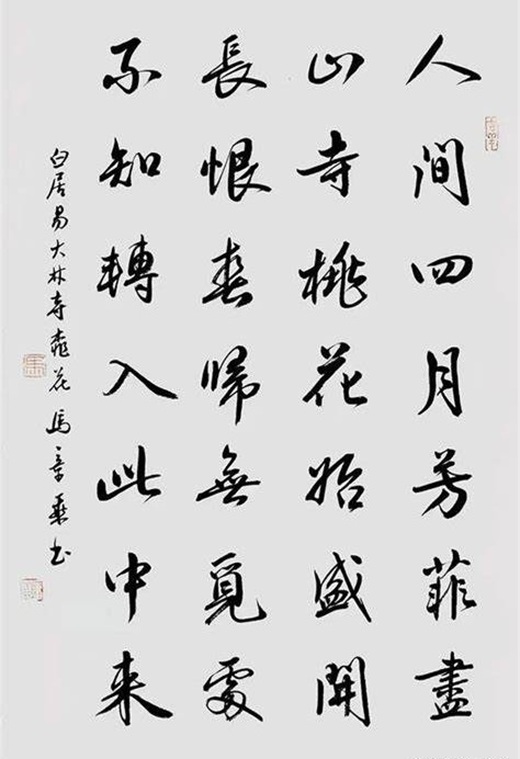 人間四月芳菲盡
山寺桃花始盛開
長恨春歸無覓處
不知轉入此中来
白居易大林寺桃花馬章乘书